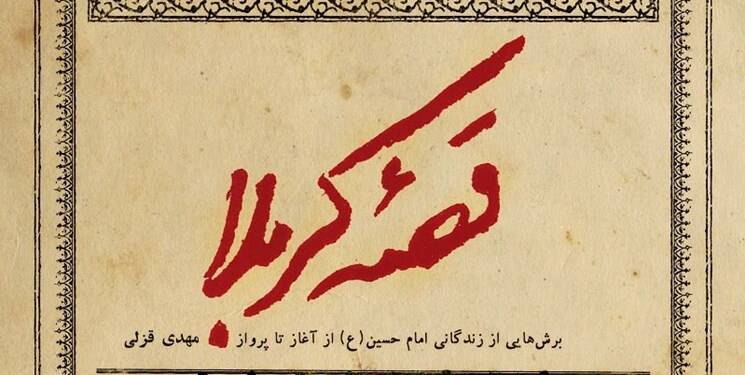 قصهٔ کربلا
برش‌هایی از زندگانی امام حسین(ع) از آغاز تا پرواز مهدی قزلی